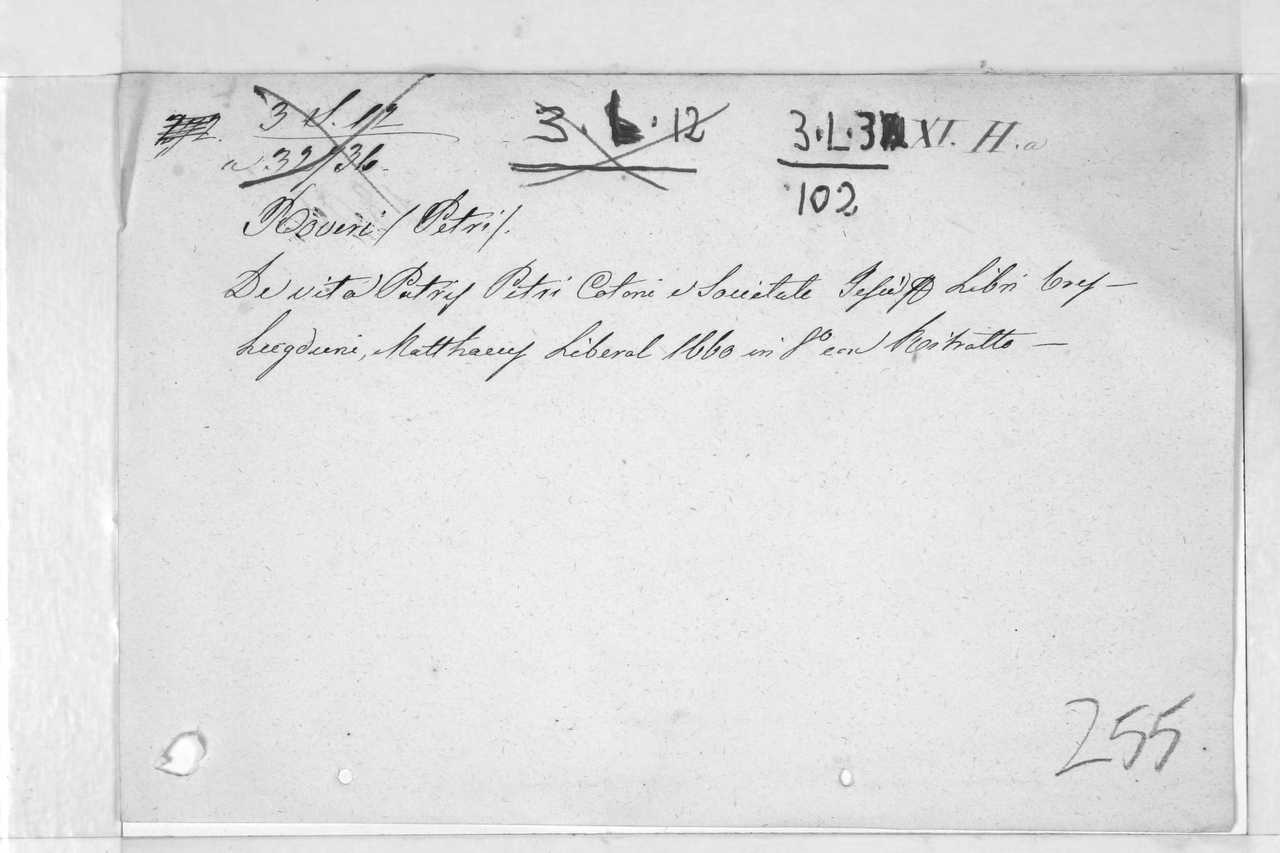 3 L. 12
3. L. 12
3.L.3
XI. H. a
32/36.
102
Roveri /Petri/.
De vita Patris Petri Cotoni e Societate Jesu Libri tres —
Lugduni, Matthaeus Liberal 1660 in 8º con Ritratto —
255.